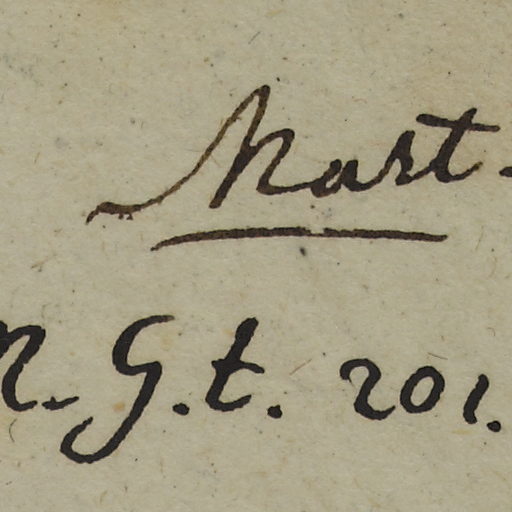 Mart-
R. G. t. 201.